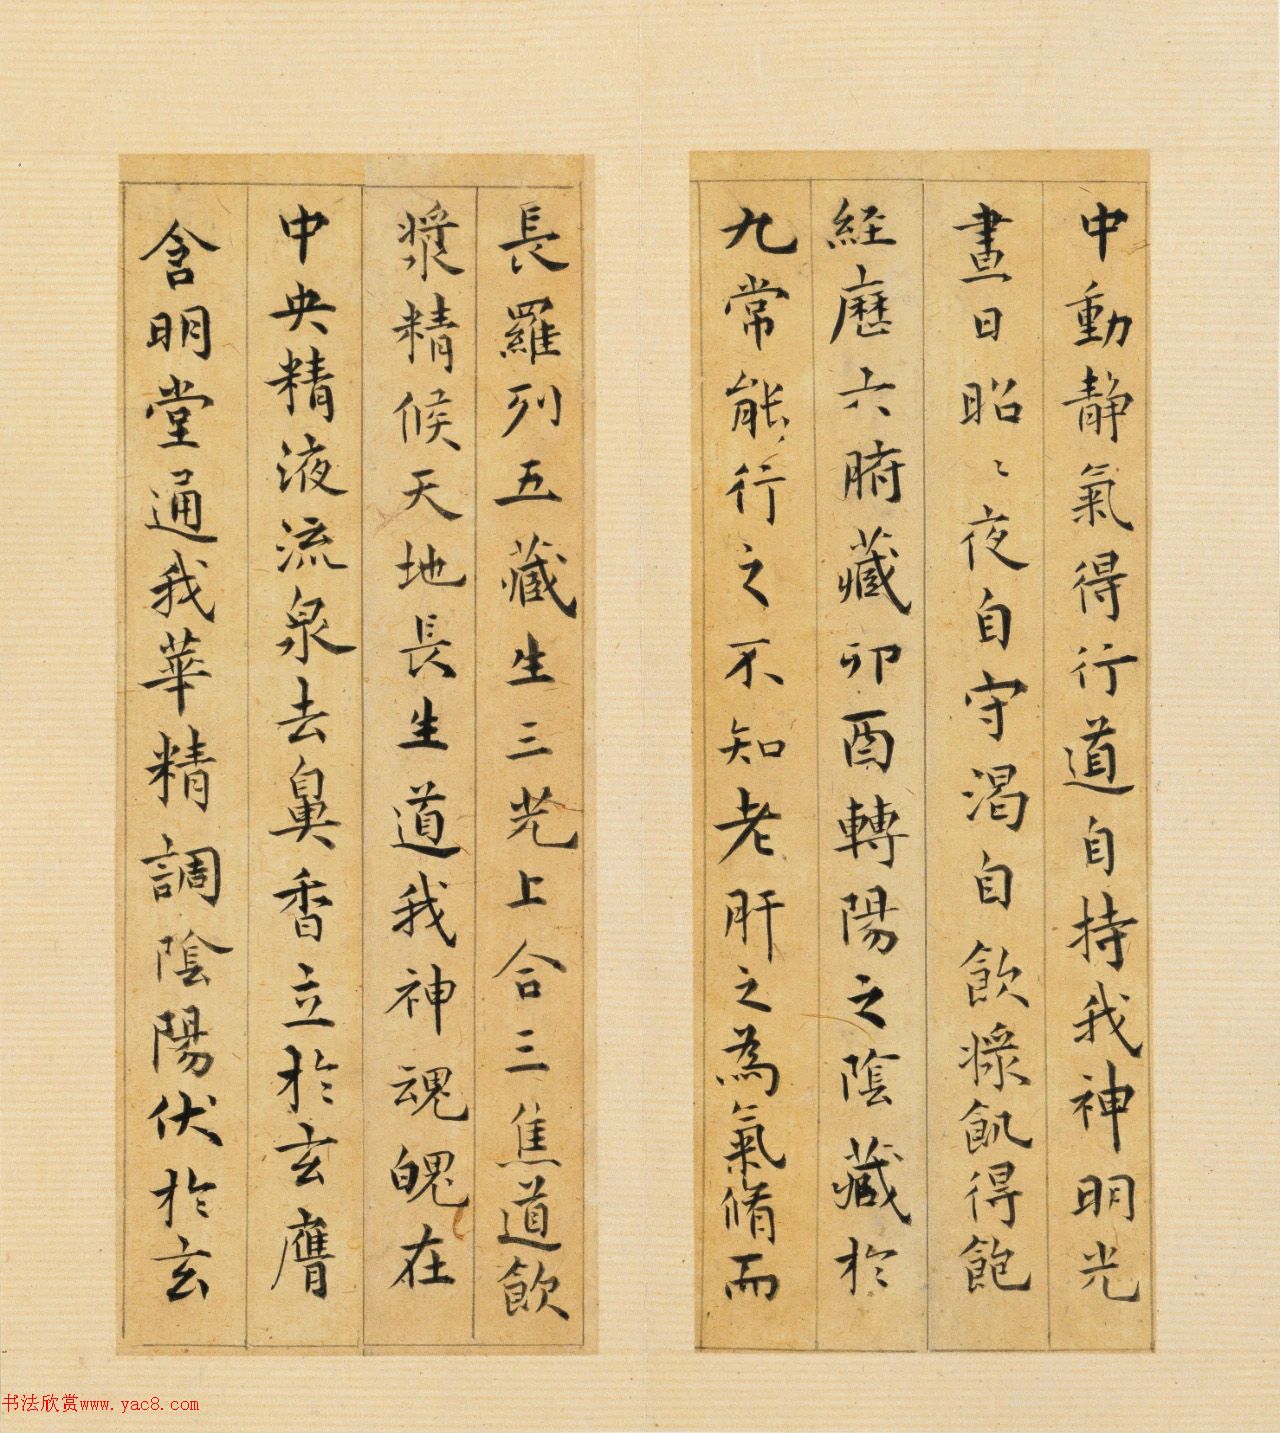 中動静氣得行道自持我神明光
晝日昭〻夜自守渴自飲漿飢得飽
経歷六腑藏卯酉轉陽之陰藏於
九常能行之不知老肝之為氣脩而
長羅列五藏生三光上合三焦道飲
漿精候天地長生道我神魂魄在
中央精液流泉去鼻香立於玄膺
含明堂通我華精調陰陽伏於玄
书法欣赏www.yac8.com